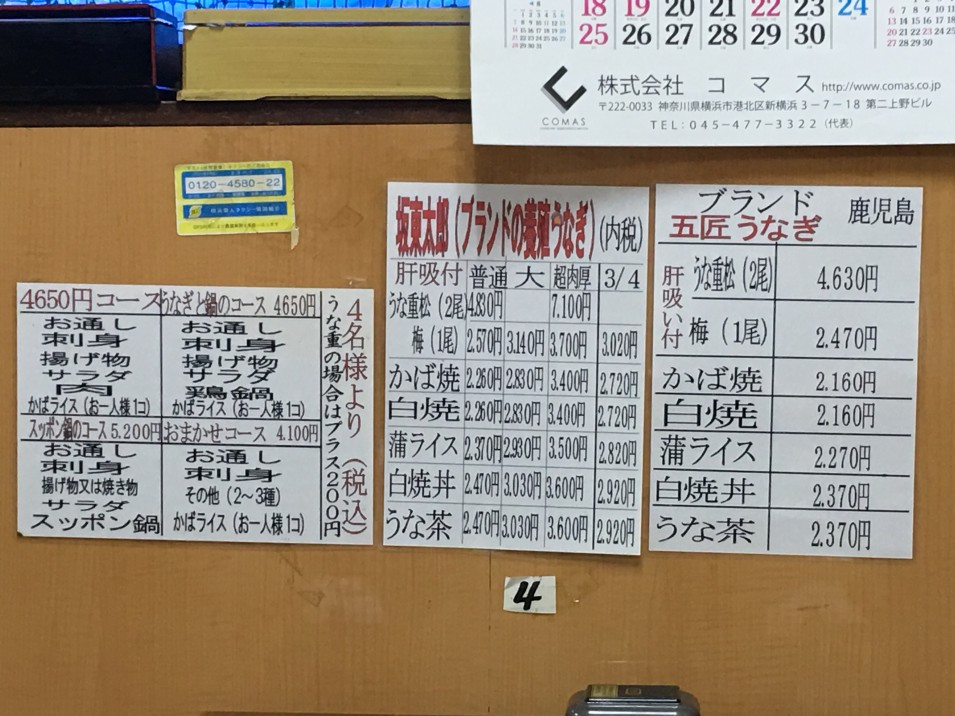 18 19 20 21 22 23 24
25 26 27 28 29 30
株式会社 コマス http://www.comas.co.jp
〒222-0033 神奈川県横浜市港北区新横浜3-7-18 第二上野ビル
TEL:045-477-3322(代表)
COMAS
0120-4580-22
4650円コース うなぎと鍋のコース 4650円
お通し お通し
刺身 刺身
揚げ物 揚げ物
サラダ サラダ
肉 鶏鍋
かばライス(お一人様1コ) かばライス(お一人様1コ)
スッポン鍋のコース5.200円 おまかせコース 4.100円
お通し お通し
刺身 刺身
揚げ物又は焼き物 その他(2~3種)
サラダ かばライス(お一人様1コ)
スッポン鍋
4名様より(税込)
うな重の場合はプラス200円
坂東太郎(ブランドの養殖うなぎ)(内税)
肝吸付 普通 大 超肉厚 3/4
うな重松(2尾) 4.830円 7.100円
梅(1尾) 2.570円 3.140円 3.700円 3.020円
かば焼 2.260円 2.830円 3.400円 2.720円
白焼 2.260円 2.830円 3.400円 2.720円
蒲ライス 2.370円 2.930円 3.500円 2.820円
白焼丼 2.470円 3.030円 3.600円 2.920円
うな茶 2.470円 3.030円 3.600円 2.920円
ブランド 鹿児島
五匠うなぎ
肝吸い付
うな重松(2尾) 4.630円
梅(1尾) 2.470円
かば焼 2.160円
白焼 2.160円
蒲ライス 2.270円
白焼丼 2.370円
うな茶 2.370円
4